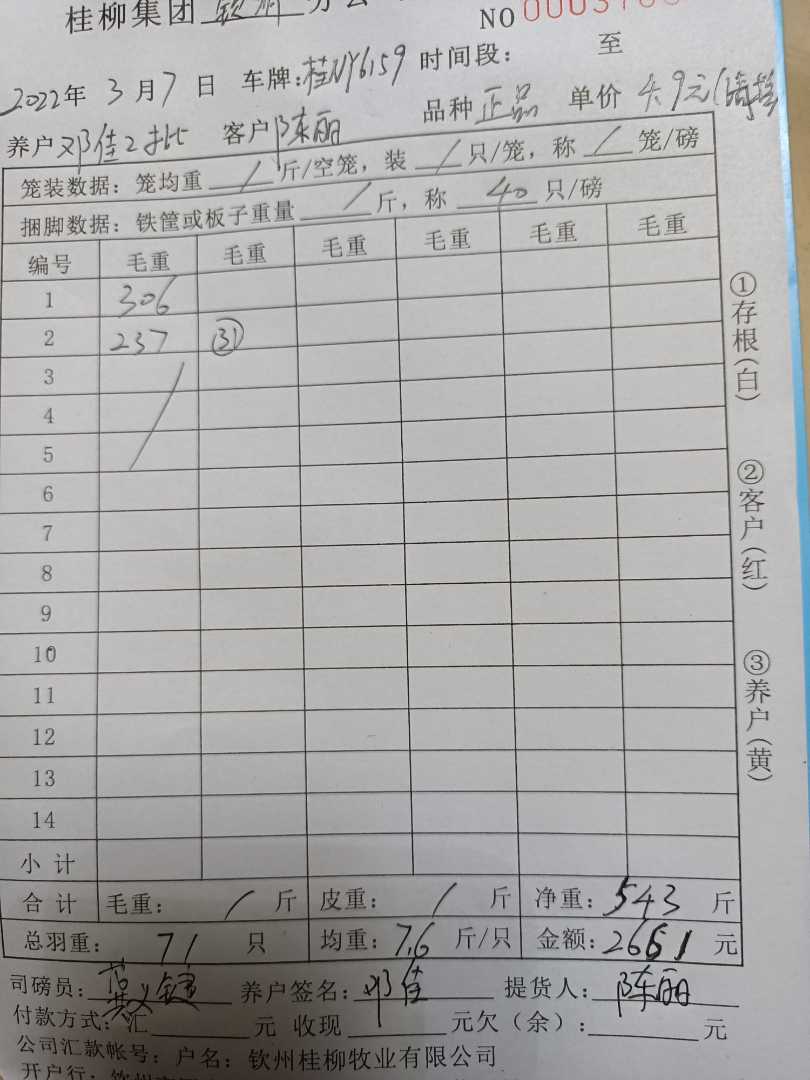 桂柳集团 钦州 分公
NO 0003
2022年 3月7日 车牌:桂NY6159 时间段: 至
养户 邓佳2批 客户 陈丽 品种 正品 单价 4.9元
笼装数据: 笼均重 / 斤/空笼, 装 / 只/笼, 称 / 笼/磅
捆脚数据: 铁筐或板子重量 / 斤, 称 40 只/磅
编号 毛重 毛重 毛重 毛重 毛重 毛重
1 306
2 237 (31)
3
4
5
6
7
8
9
10
11
12
13
14
小计
合计 毛重: / 斤 皮重: / 斤 净重: 543 斤
总羽重: 71 只 均重: 7.6 斤/只 金额: 2661 元
司磅员: 养户签名: 邓佳 提货人: 陈丽
付款方式: 汇 元 收现 元欠(余): 元
公司汇款帐号: 户名: 钦州桂柳牧业有限公司
开户行:
①存根(白)
②客户(红)
③养户(黄)